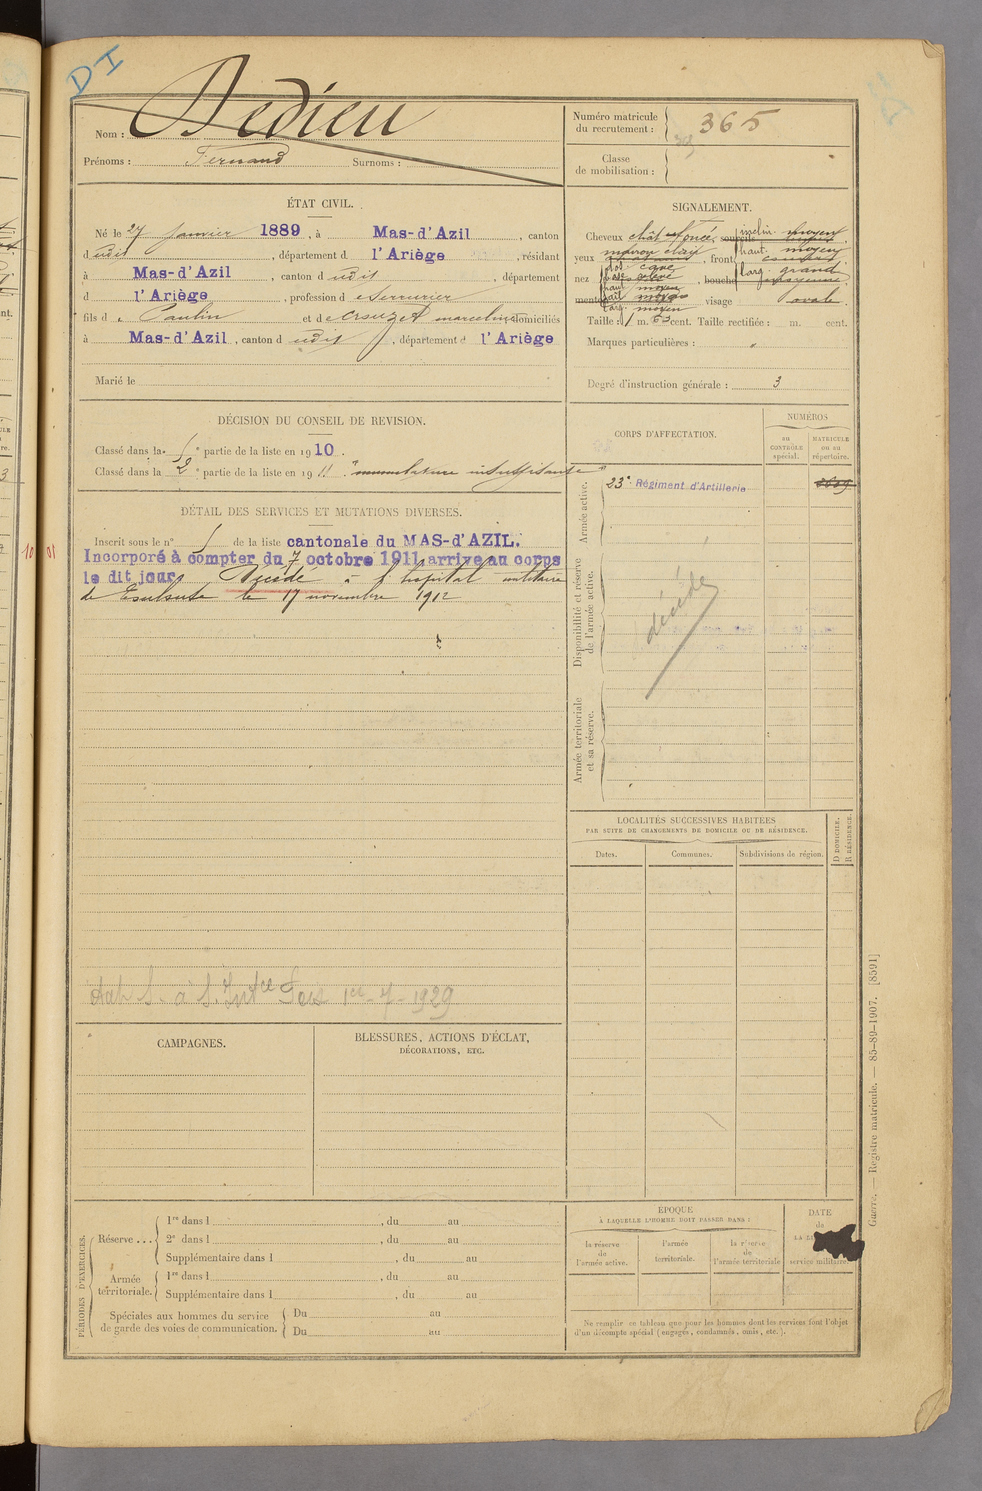 DI
Nom : Dedieu
Prénoms : Fernand Surnoms :
Numéro matricule du recrutement : 365
Classe de mobilisation :
ÉTAT CIVIL.
Né le 27 janvier 1889, à Mas-d'Azil, canton
dudit, département d l'Ariège, résidant
à Mas-d'Azil, canton dudit, département
d l'Ariège, profession de serrurier
fils de Paulin et de Crouzet marceline domiciliés
à Mas-d'Azil, canton dudit, département d l'Ariège
Marié le
SIGNALEMENT.
Cheveux chât foncé, sourcils inclin. moyen
yeux marron clair, front haut. moyen
larg. grand
nez dos cave
base relevé, bouche moyenne
menton haut moyen
sail moyen
larg. moyen visage ovale
Taille : 1 m. 63 cent. Taille rectifiée : m. cent.
Marques particulières : "
Degré d'instruction générale : 3
DÉCISION DU CONSEIL DE REVISION.
Classé dans la 5e partie de la liste en 1910.
Classé dans la 2e partie de la liste en 1911 insuffisante
DÉTAIL DES SERVICES ET MUTATIONS DIVERSES.
Inscrit sous le n° 5 de la liste cantonale du MAS-d'AZIL.
Incorporé à compter du 7 octobre 1911, arrivé au corps
le dit jour, Décédé à l'hopital militaire
de Toulouse le 17 novembre 1912
1er-7-1929
CORPS D'AFFECTATION.
NUMÉROS
au CONTRÔLE spécial.
MATRICULE ou au répertoire.
Armée active.
23e Régiment d'Artillerie
Disponibilité et réserve de l'armée active.
décédé
Armée territoriale et sa réserve.
LOCALITÉS SUCCESSIVES HABITÉES
PAR SUITE DE CHANGEMENTS DE DOMICILE OU DE RÉSIDENCE.
D DOMICILE.
R RÉSIDENCE.
Dates. Communes. Subdivisions de région.
CAMPAGNES.
BLESSURES, ACTIONS D'ÉCLAT,
DÉCORATIONS, ETC.
PÉRIODES D'EXERCICES.
Réserve ...
1re dans l , du au
2e dans l , du au
Supplémentaire dans l , du au
Armée territoriale.
1re dans l , du au
Supplémentaire dans l , du au
Spéciales aux hommes du service
de garde des voies de communication.
Du au
Du au
ÉPOQUE
À LAQUELLE L'HOMME DOIT PASSER DANS :
la réserve de l'armée active.
l'armée territoriale.
la réserve de l'armée territoriale
DATE
de
service militaire.
Ne remplir ce tableau que pour les hommes dont les services font l'objet
d'un décompte spécial (engagés, condamnés, omis, etc.).
Guerre. — Registre matricule. — 85-89-1907. [8591]